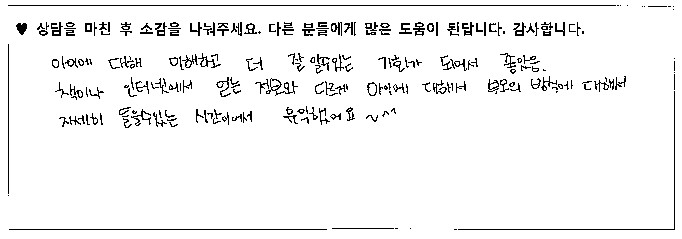 ♥ 상담을 마친 후 소감을 나눠주세요. 다른 분들에게 많은 도움이 된답니다. 감사합니다.
아이에 대해 이해하고 더 잘 알수있는 기회가 되어서 좋았음.
책이나 인터넷에서 얻는 정보와 다르게 아이에 대해서 부모의 방식에 대해서
자세히 들을수있는 시간이어서 유익했어요 ~^^